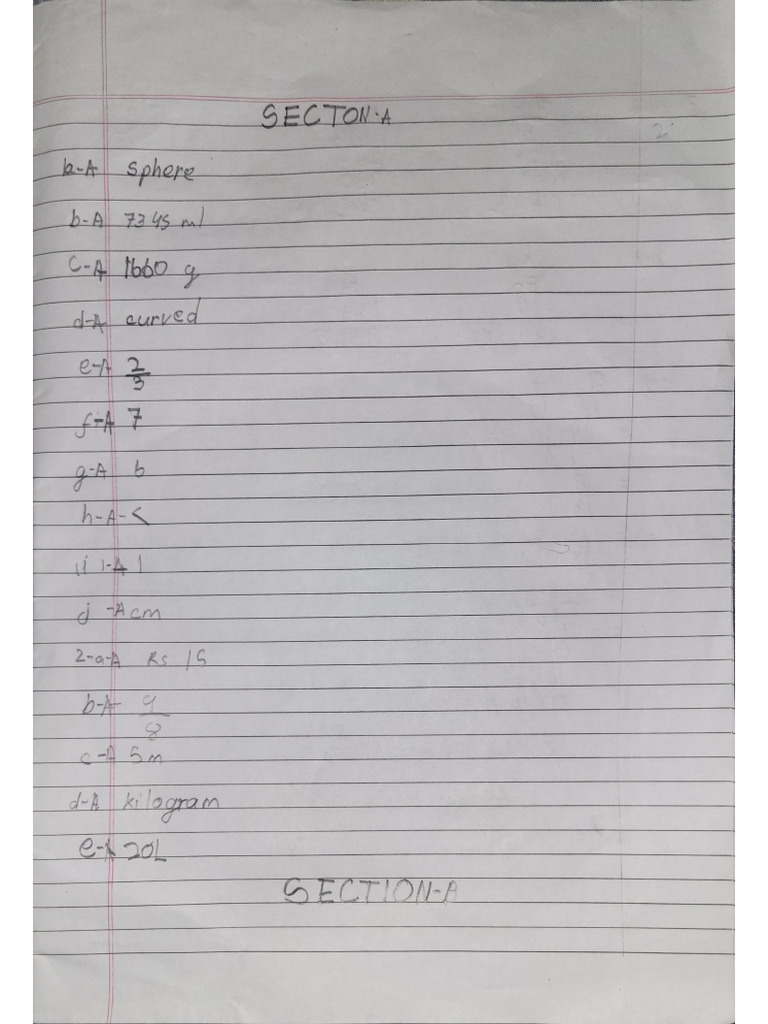 SECTON-A
a-A sphere
b-A 7345 ml
C-A 1660 g
d-A curved
e-A 2/3
f-A 7
g-A 6
h-A-<
i-A 1
j-A cm
2-a-A Rs 15
b-A 9/8
c-A 5m
d-A kilogram
e-A 20L
SECTION-A